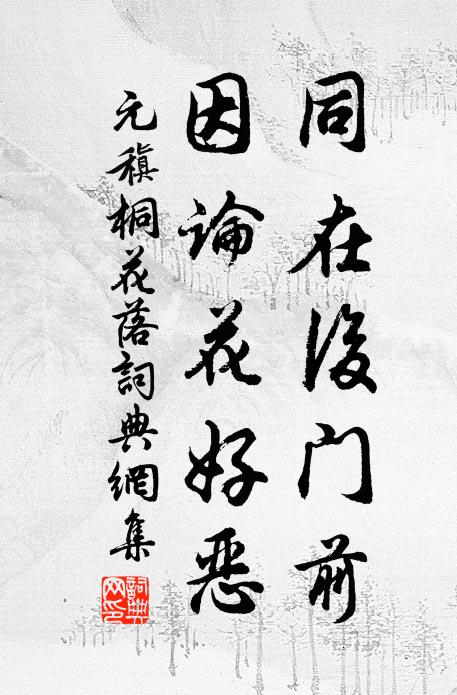 同在後门前
因論花好恶
元稹桐花落詞典網集
詞典
网印